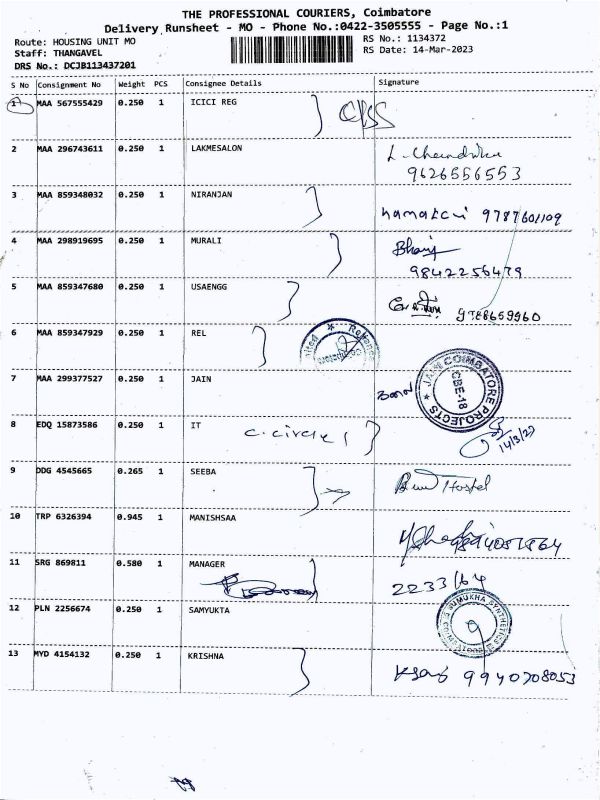 THE PROFESSIONAL COURIERS, Coimbatore
Delivery Runsheet - MO - Phone No.:0422-3505555 - Page No.:1
Route: HOUSING UNIT MO
RS No.: 1134372
Staff: THANGAVEL
RS Date: 14-Mar-2023
DRS No.: DCJB113437201
S No Consignment No Weight PCS Consignee Details Signature
1 MAA 567555429 0.250 1 ICICI REG
2 MAA 296743611 0.250 1 LAKMESALON
9626556553
3 MAA 859348032 0.250 1 NIRANJAN
4 MAA 298919695 0.250 1 MURALI
9842256479
5 MAA 859347680 0.250 1 USAENGG
9788659960
6 MAA 859347929 0.250 1 REL
7 MAA 299377527 0.250 1 JAIN
JAIN COIMBATORE PROJECTS
CBE-18
8 EDQ 15873586 0.250 1 IT C.circle 1
9 DDG 4545665 0.265 1 SEEBA Hostel
10 TRP 6326394 0.945 1 MANISHSAA
11 SRG 869811 0.580 1 MANAGER
2233/64
12 PLN 2256674 0.250 1 SAMYUKTA SUMUKHA SYNTHETICS
13 MYD 4154132 0.250 1 KRISHNA
9940708053